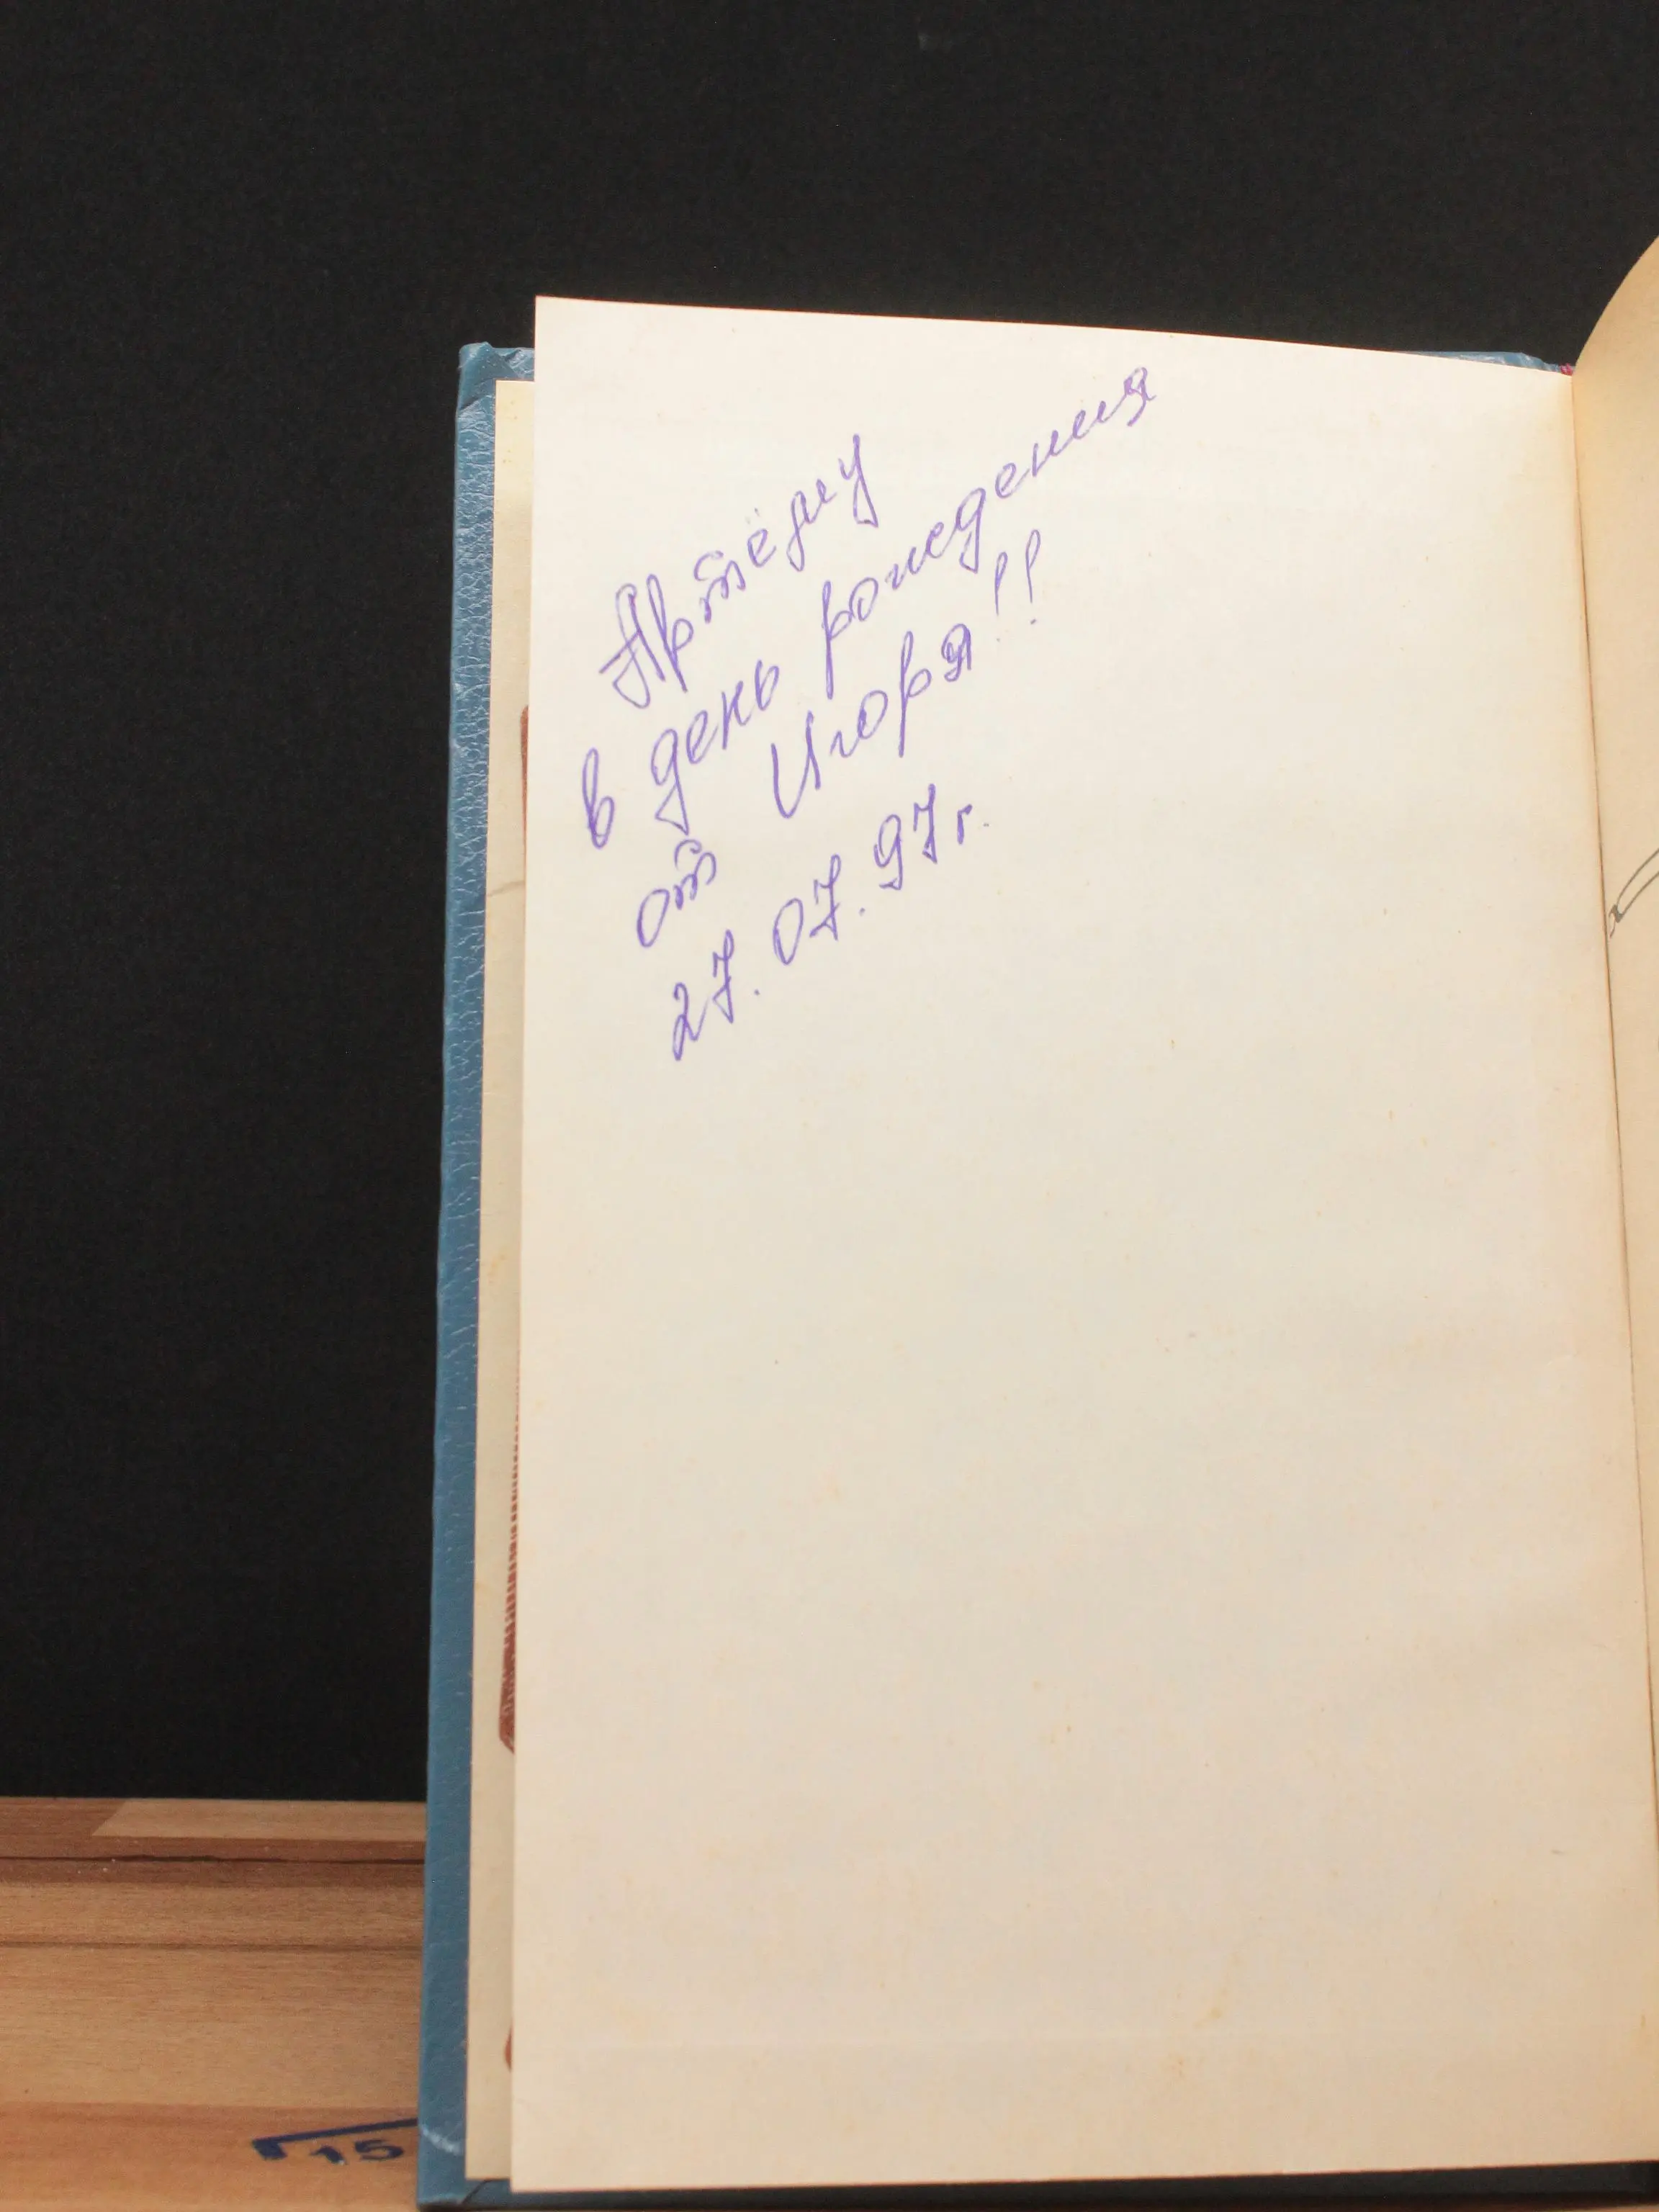 Артёму
в день рождения
от Игоря!!
27.07.97г.
15